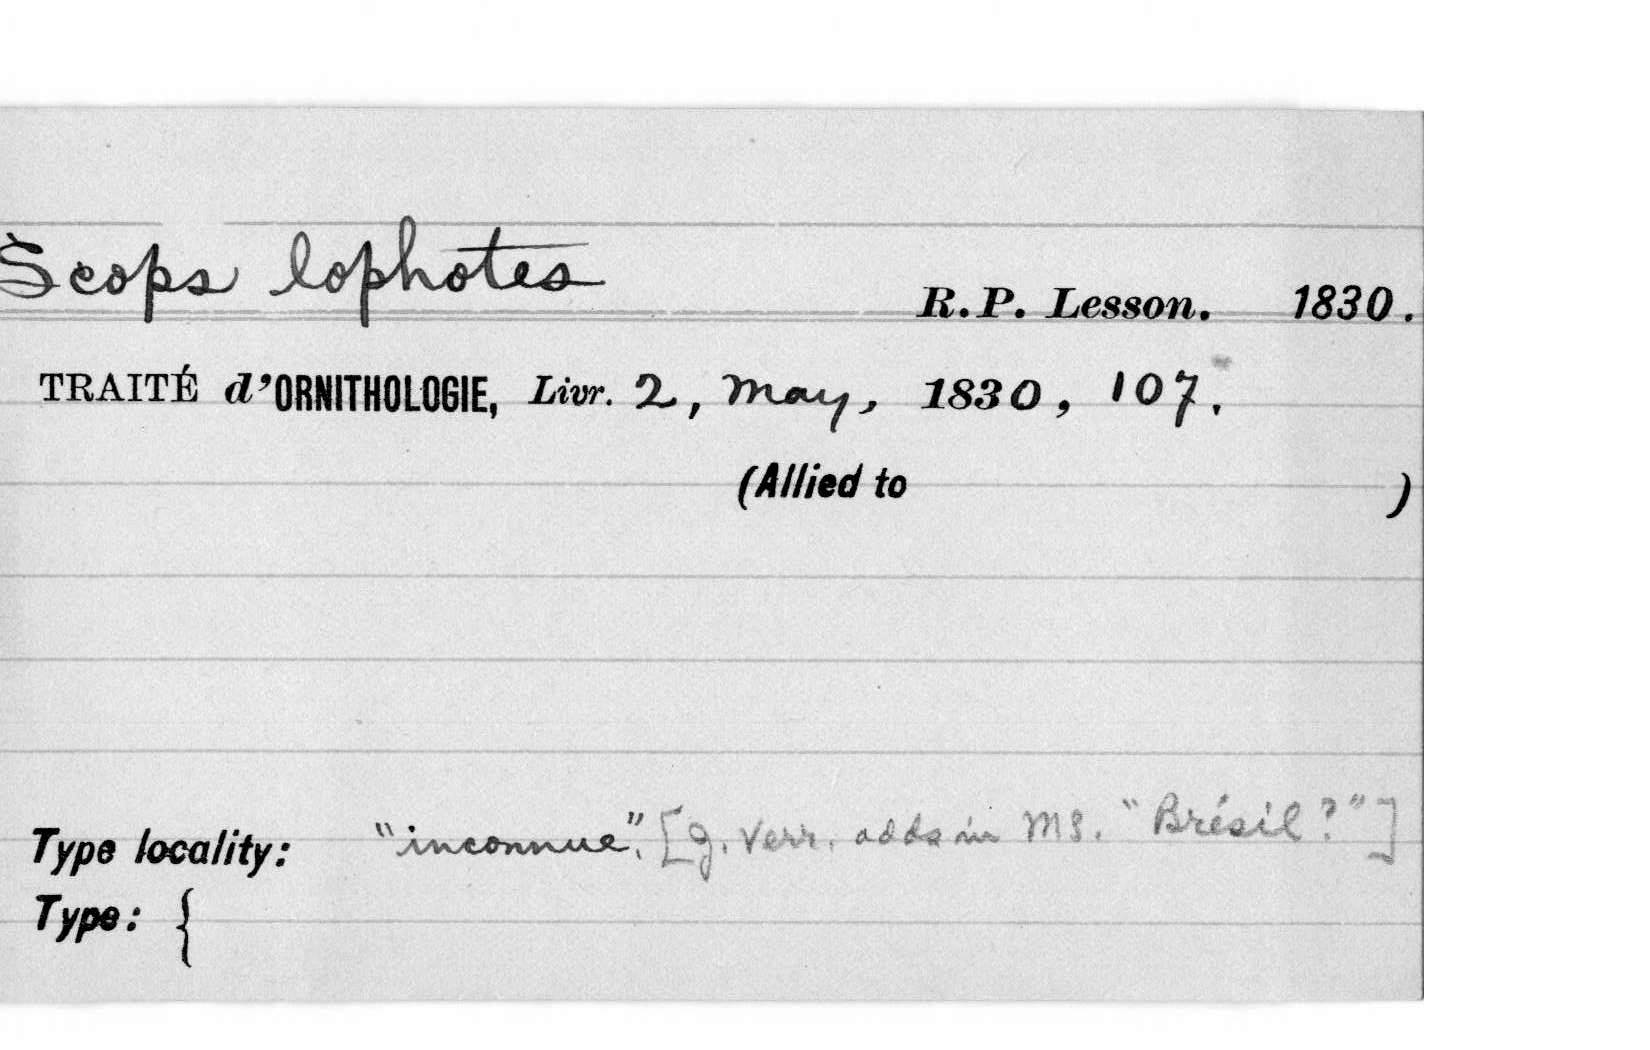 Scops lophotes
R.P. Lesson. 1830.
TRAITÉ d'ORNITHOLOGIE, Livr. 2, May, 1830, 107.
(Allied to )
Type locality: "inconnue". [G. Verr. adds in MS. "Brésil?"]
Type: {